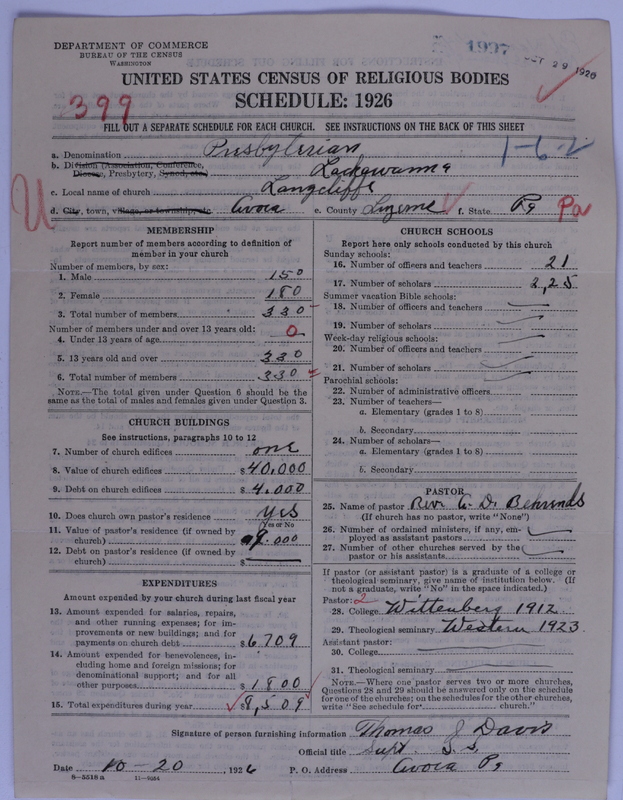 DEPARTMENT OF COMMERCE
BUREAU OF THE CENSUS
WASHINGTON
1997
OCT 29 1926
UNITED STATES CENSUS OF RELIGIOUS BODIES
SCHEDULE: 1926
399
FILL OUT A SEPARATE SCHEDULE FOR EACH CHURCH. SEE INSTRUCTIONS ON THE BACK OF THIS SHEET
1-6-2
a. Denomination Presbyterian
b. Division (Association, Conference,
Diocese, Presbytery, Synod, etc.) Lackawanna
c. Local name of church Langcliffe
U
d. City, town, village, or township, etc. Avoca e. County Luzerne f. State Pa Pa
MEMBERSHIP
Report number of members according to definition of
member in your church
Number of members, by sex:
1. Male 150
2. Female 180
3. Total number of members 330
Number of members under and over 13 years old:
4. Under 13 years of age 0
5. 13 years old and over 330
6. Total number of members 330
NOTE.—The total given under Question 6 should be
the same as the total of males and females given under Question 3.
CHURCH BUILDINGS
See instructions, paragraphs 10 to 12
7. Number of church edifices one
8. Value of church edifices $40,000
9. Debt on church edifices $4,000
10. Does church own pastor's residence yes
Yes or No
11. Value of pastor's residence (if owned by
church) 9,000
12. Debt on pastor's residence (if owned by
church) $
EXPENDITURES
Amount expended by your church during last fiscal year
13. Amount expended for salaries, repairs,
and other running expenses; for im-
provements or new buildings; and for
payments on church debt $6709
14. Amount expended for benevolences, in-
cluding home and foreign missions; for
denominational support; and for all
other purposes $1800
15. Total expenditures during year $8,509
CHURCH SCHOOLS
Report here only schools conducted by this church
Sunday schools:
16. Number of officers and teachers 21
17. Number of scholars 225
Summer vacation Bible schools:
18. Number of officers and teachers
19. Number of scholars
Week-day religious schools:
20. Number of officers and teachers
21. Number of scholars
Parochial schools:
22. Number of administrative officers
23. Number of teachers—
a. Elementary (grades 1 to 8)
b. Secondary
24. Number of scholars—
a. Elementary (grades 1 to 8)
b. Secondary
PASTOR
25. Name of pastor Rev. C. D. Behrends
(If church has no pastor, write "None")
26. Number of ordained ministers, if any, em-
ployed as assistant pastors
27. Number of other churches served by the
pastor or his assistants
If pastor (or assistant pastor) is a graduate of a college or
theological seminary, give name of institution below. (If
not a graduate, write "No" in the space indicated.)
Pastor: 2
28. College Wittenberg 1912
29. Theological seminary Western 1923
Assistant pastor:
30. College
31. Theological seminary
NOTE.—Where one pastor serves two or more churches,
Questions 28 and 29 should be answered only on the schedule
for one of the churches; on the schedules for the other churches,
write "See schedule for church."
Signature of person furnishing information Thomas J Davis
Official title Supt. S.S.
Date 10-20, 1926 P. O. Address Avoca Pa
8-5518 a 11-9254